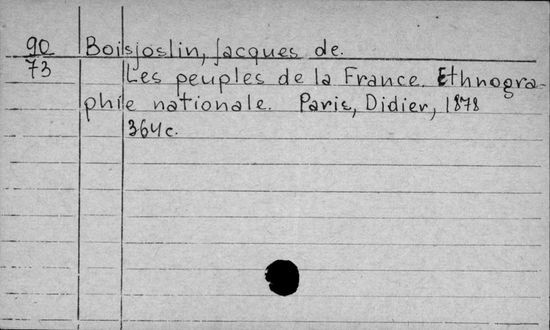 90 Boisjoslin, Jacques de.
73 Les peuples de la France. Ethnogra-
phie nationale. Paris, Didier, 1878
364c.